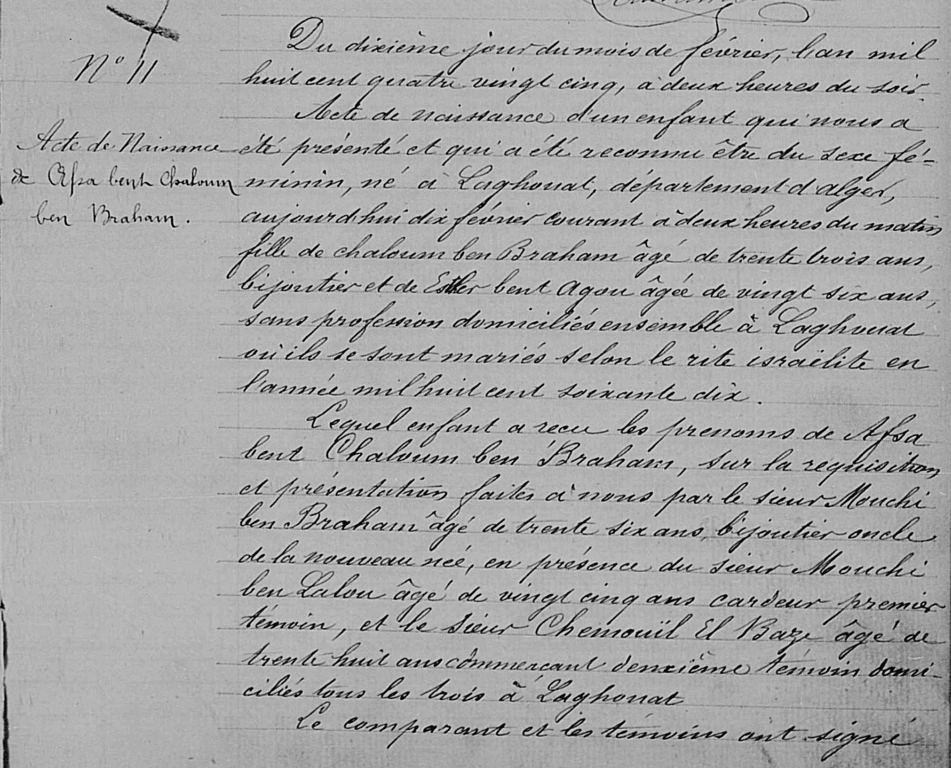 N° 11
Acte de Naissance
de Afsa bent Chaloum
ben Braham.
Du dixième jour du mois de février, l'an mil
huit cent quatre vingt cinq, à deux heures du soir
Acte de naissance d'un enfant qui nous a
été présenté et qui a été reconnu être du sexe fé-
minin, né à Laghouat, département d'alger,
aujourd'hui dix février courant à deux heures du matin
fille de chaloum ben Braham âgé de trente trois ans,
bijoutier et de Esther bent Agou âgée de vingt six ans,
sans profession domiciliés ensemble à Laghouat
où ils se sont mariés selon le rite israëlite en
l'année mil huit cent soixante dix.
Lequel enfant a recu les prenoms de Afsa
bent Chaloum ben Braham, sur la requisition
et présentation faites à nous par le sieur Mouchi
ben Braham âgé de trente six ans, bijoutier oncle
de la nouveau née, en présence du sieur Mouchi
ben Lalou âgé de vingt cinq ans cardeur premier
témoin, et le sieur Chemouïl El Baze âgé de
trente huit ans commercant deuxième témoin domi-
ciliés tous les trois à Laghouat
Le comparant et les témoins ont signé